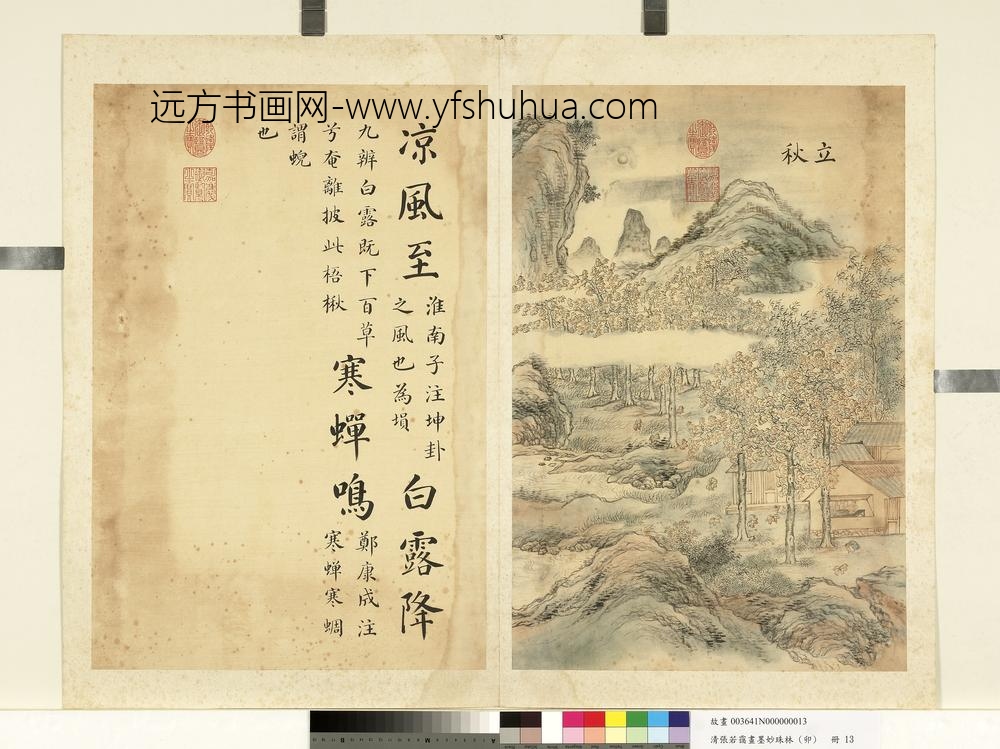 远方书画网-www.yfshuhua.com
立秋
凉風至
淮南子注坤卦
之風也為塤
白露降
九辨白露既下百草
兮奄離披此梧楸
寒蟬鳴
鄭康成注
寒蟬寒蜩
謂蜺
也
故畫 003641N000000013
清張若靄畫墨妙珠林（卯） 冊 13